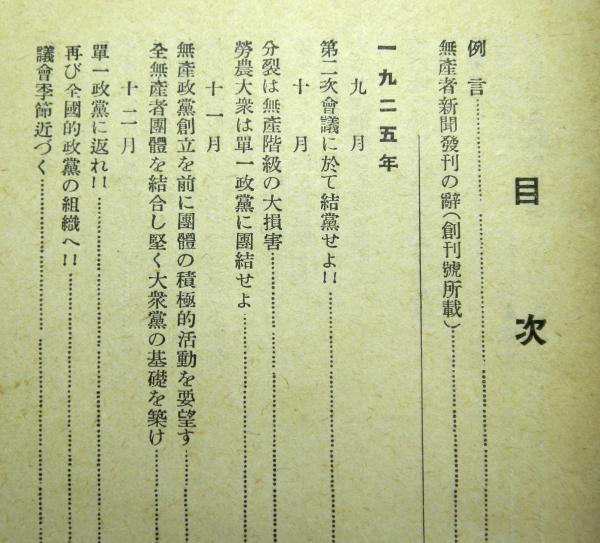 目次
例言
無產者新聞發刊の辭(創刊號所載)
一九二五年
九月
第二次會議に於て結黨せよ!!
十月
分裂は無產階級の大損害
勞農大衆は單一政黨に團結せよ
十一月
無產政黨創立を前に團體の積極的活動を要望す
全無產者團體を結合し堅く大衆黨の基礎を築け
十二月
單一政黨に返れ!!
再び全國的政黨の組織へ!!
議會季節近づく